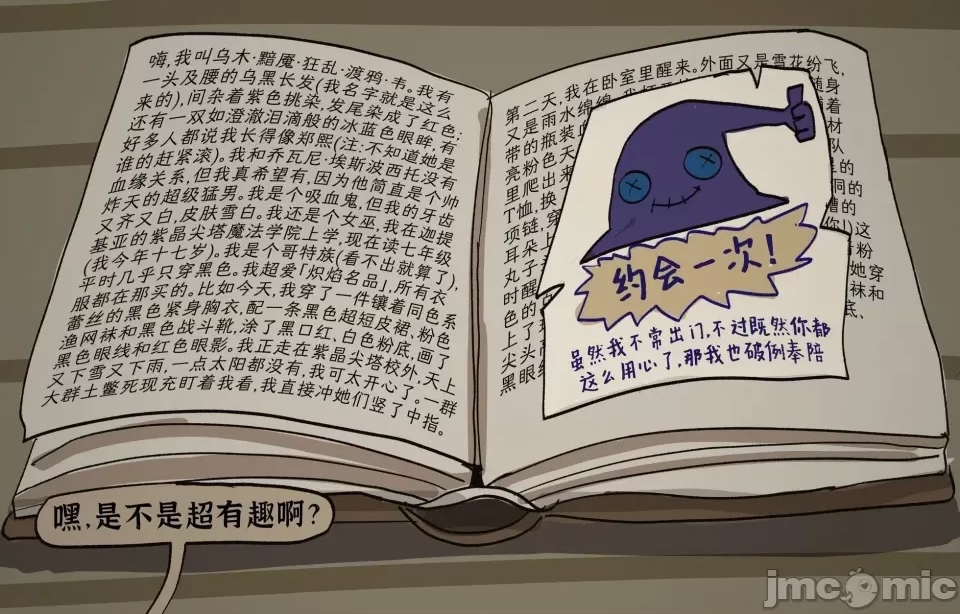 嗨,我叫乌木·黯魇·狂乱·渡鸦·韦。我有
一头及腰的乌黑长发(我名字就是这么
来的),间杂着紫色挑染,发尾染成了红色;
还有一双如澄澈泪滴般的冰蓝色眼眸;有
好多人都说我长得像郑熙(注:不知道她是
谁的赶紧滚)。我和乔瓦尼·埃斯波西托没有
血缘关系,但我真希望有,因为他简直是个帅
炸天的超级猛男。我是个吸血鬼,但我的牙齿
又齐又白,皮肤雪白。我还是个女巫,我在迦提
基亚的紫晶尖塔魔法学院上学,现在读七年级
(我今年十七岁)。我是个哥特族(看不出就算了),
平时几乎只穿黑色。我超爱「炽焰名品」,所有衣
服都在那买的。比如今天,我穿了一件镶着同色系
蕾丝的黑色紧身胸衣,配一条黑色超短皮裙、粉色
渔网袜和黑色战斗靴,涂了黑口红、白色粉底,画了
黑色眼线和红色眼影。我正走在紫晶尖塔校外,天上
又下雪又下雨,一点太阳都没有,我可太开心了。一群
大群土鳖死现充盯着我看,我直接冲她们竖了中指。
第二天,我在卧室里醒来。外面又是雪花纷飞,
又是雨水绵绵
随身
带的瓶装
着
亮粉色天
材
里爬出来
队
T恤,换
的
项链,穿
同的
耳朵上
槽的
丸子
你!)这
时醒
粉
色的
她穿
上了
袜和
尖头
底,
黑眼
约会一次!
虽然我不常出门,不过既然你都
这么用心了,那我也破例奉陪
嘿,是不是超有趣啊?
jmcomic